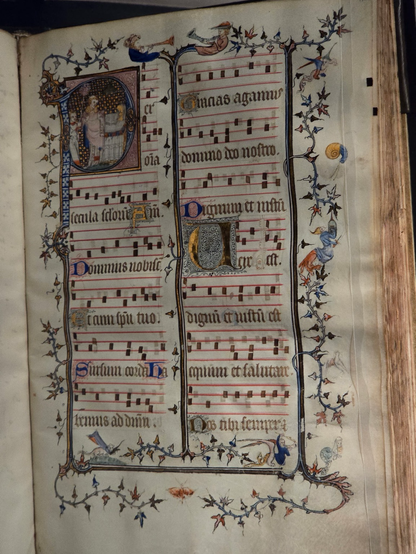 er
oĩa
secula seculoꝝ Am̃.
Dominus nobisc̃
Et cum spũ tuo.
Sursum corda. Ha
bemus ad dñm.
Gracias agamus
domino deo nostro.
Dignum et iustũ
est.
dignũ et iustũ est
equum et salutare
Nos tibi semper